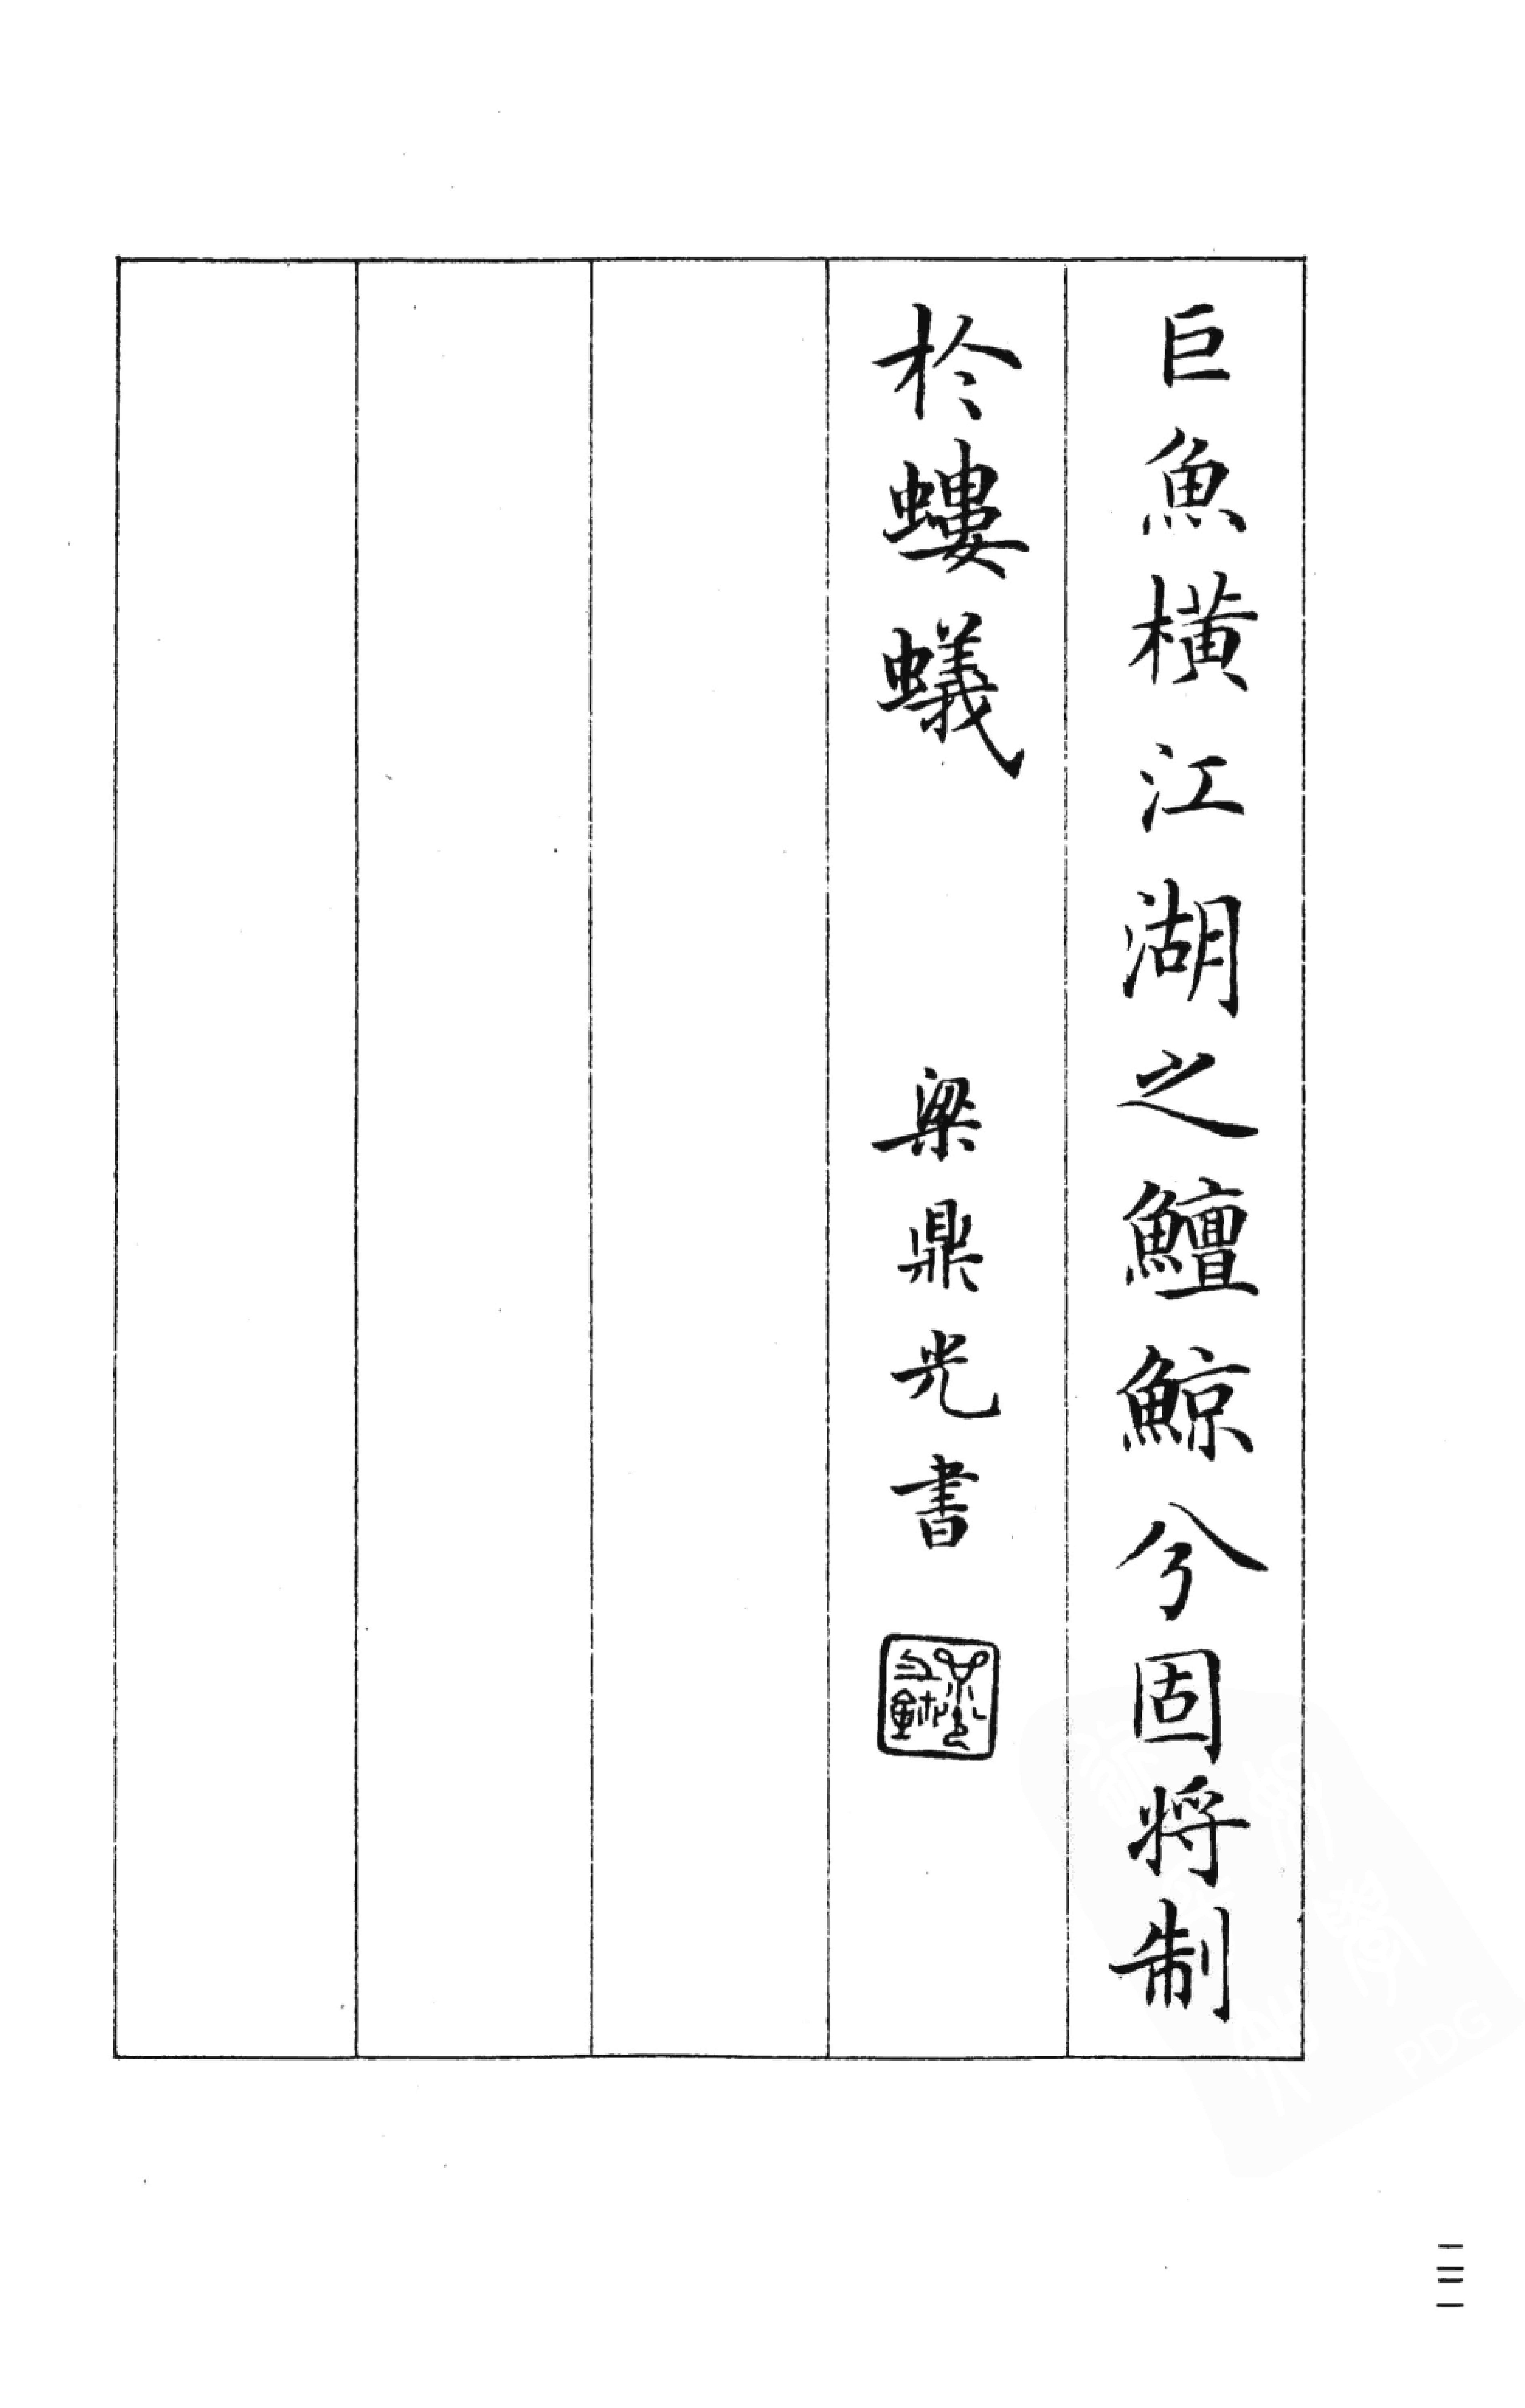 巨魚橫江湖之鱣鯨兮固將制
於螻蟻
梁鼎光書
一二一